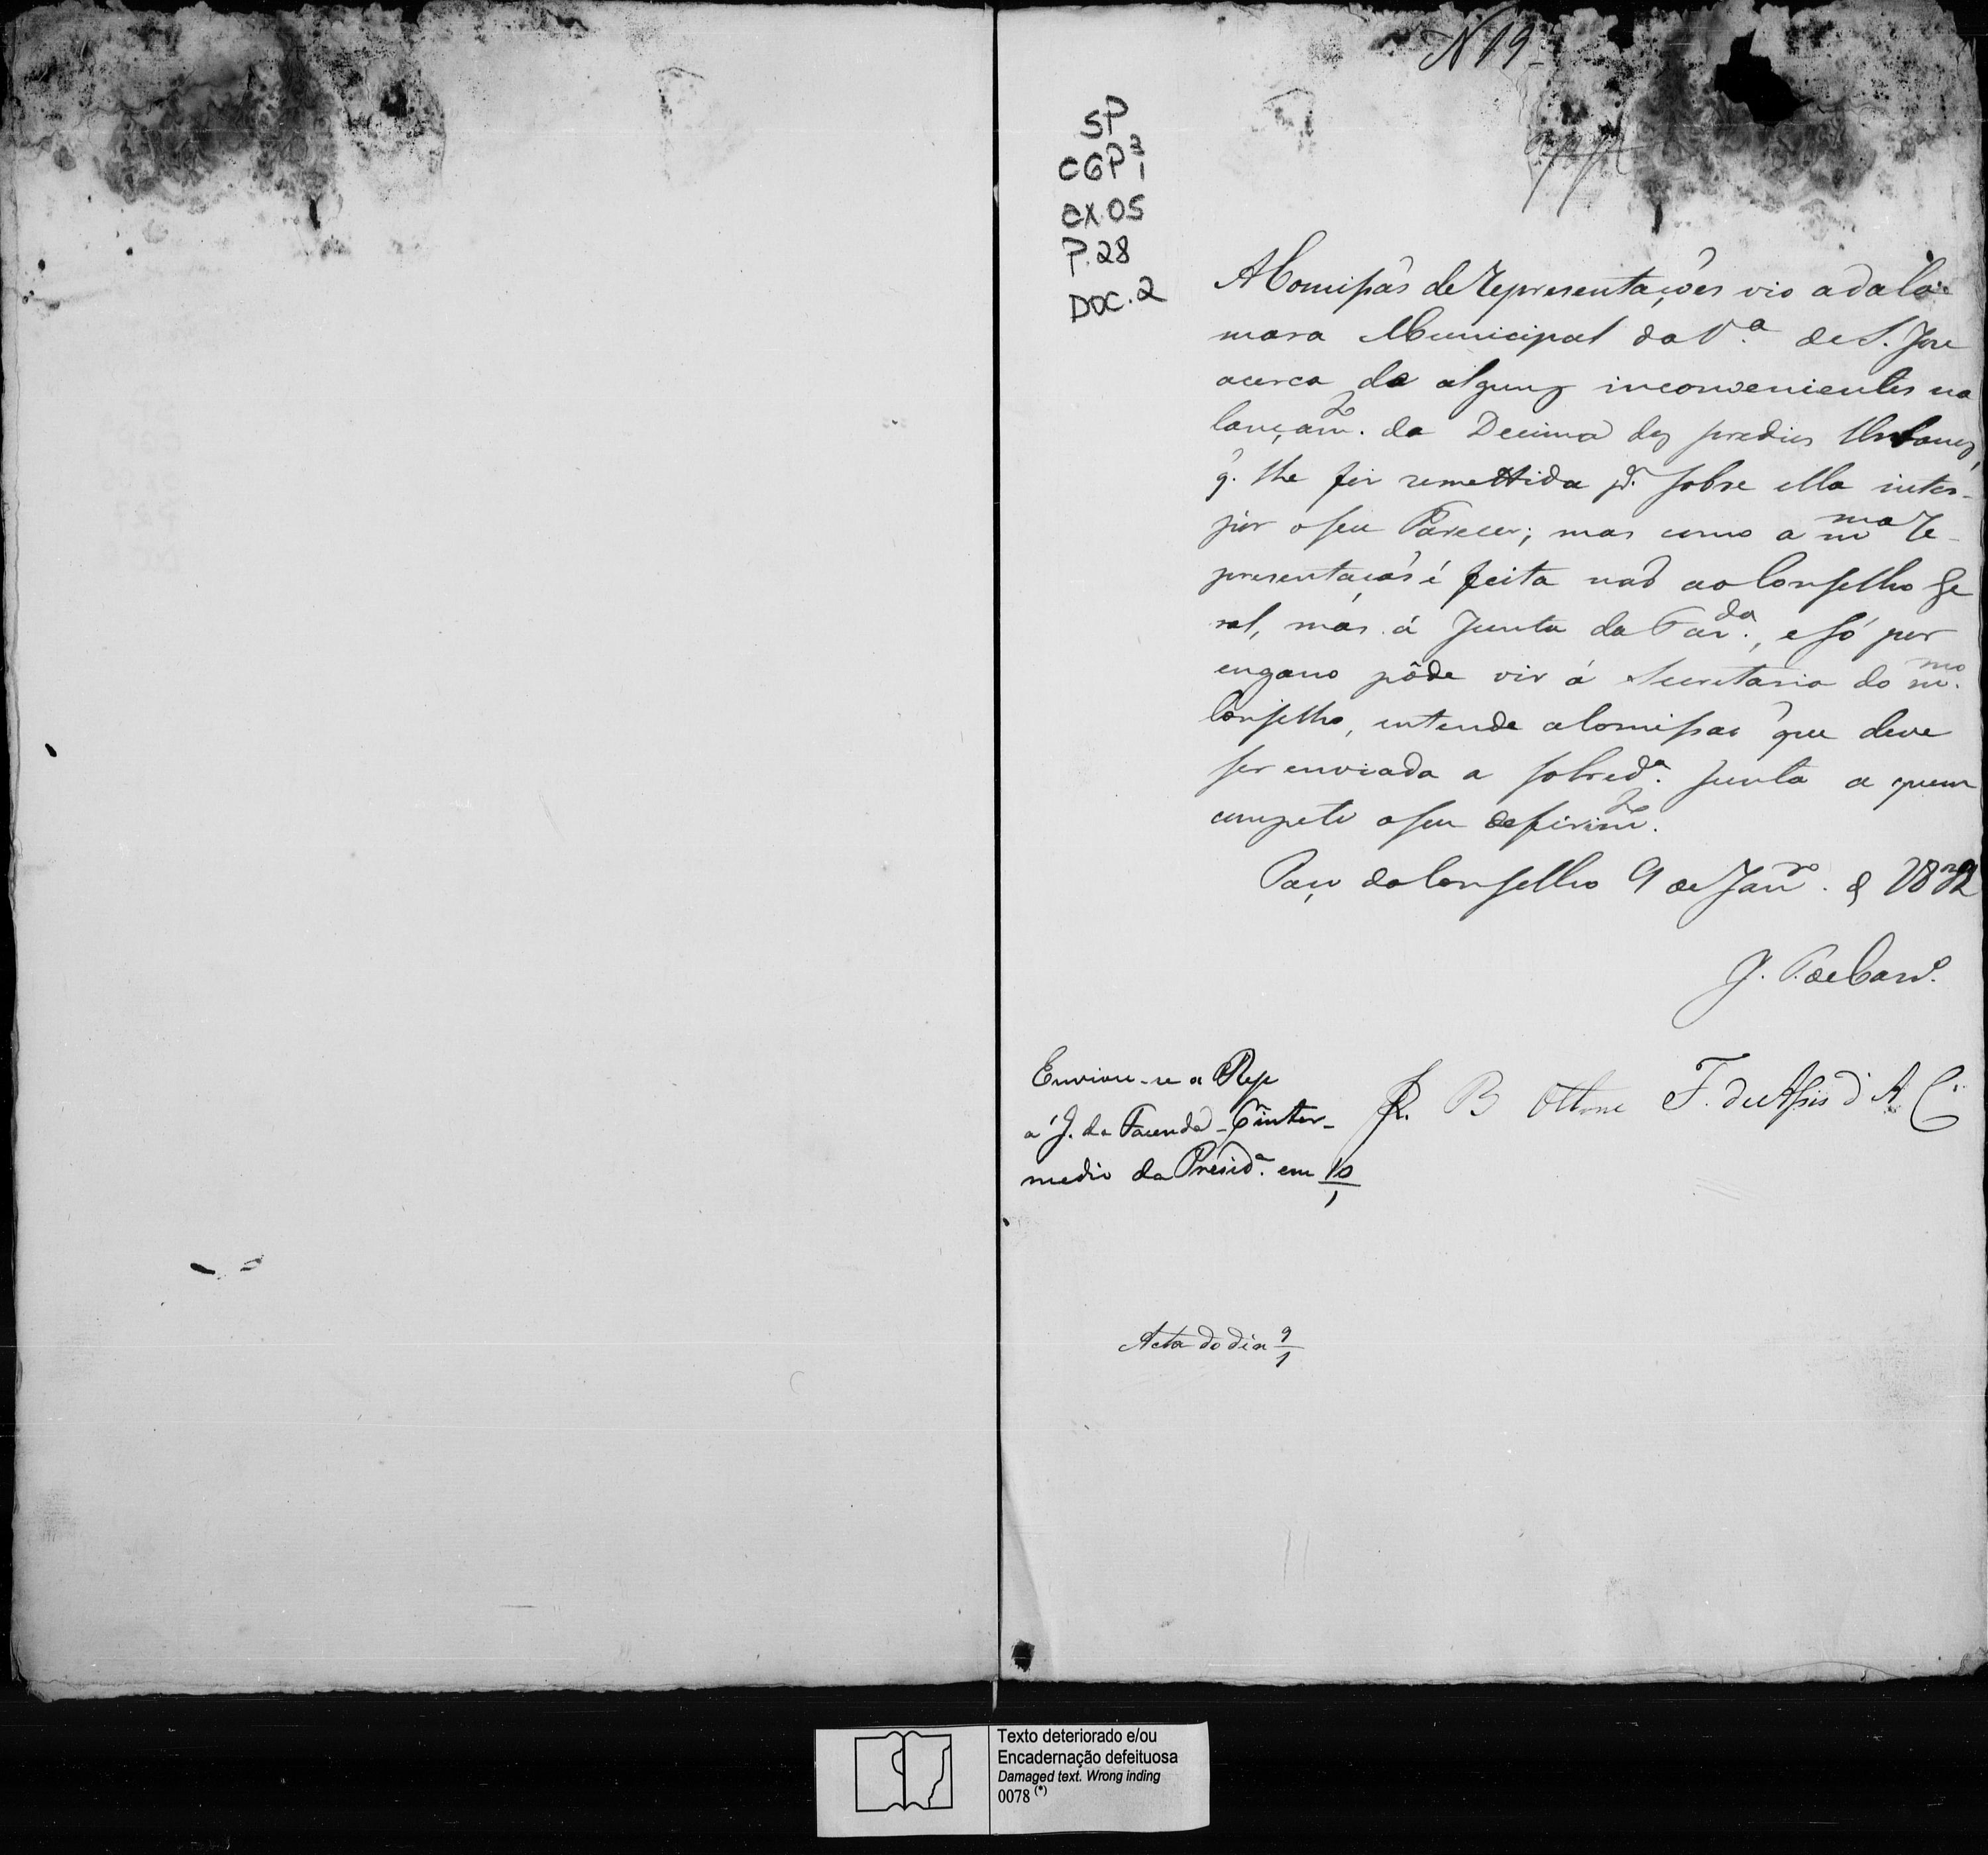 N 19
SP
CGP 3
1
CX.05
P.28
DOC.2
A Comissaõ de Representaçoẽs vio a da Ca-
mara Municipal da V.a de S. Jose
acerca de alguns inconvenientes no
lançam.to da Decima dos predios Urbanos,
q. lhe foi remettida p.a sobre ella inter-
pôr o seu Parecer; mas como a m.ma Re-
presentaçaõ é feita naõ ao Conselho Ge
ral, mas á Junta da Faz.da, e só por
engano pôde vir á Secretaria do m.mo
Conselho, entende a Comissaõ que deve
ser enviada a sobred.a Junta a quem
compete o seu deferim.to.
Paço do Conselho 9 de Jan.ro de 1832
J. P. de Carv.o
Enviou-se a Rep
á J. da Fazenda - P inter-
medio da Presid.a em 10/1
J. B Ottoni F. de Assis d' A.
Acta do dia 9/1
Texto deteriorado e/ou
Encadernação defeituosa
Damaged text. Wrong inding
0078 (*)